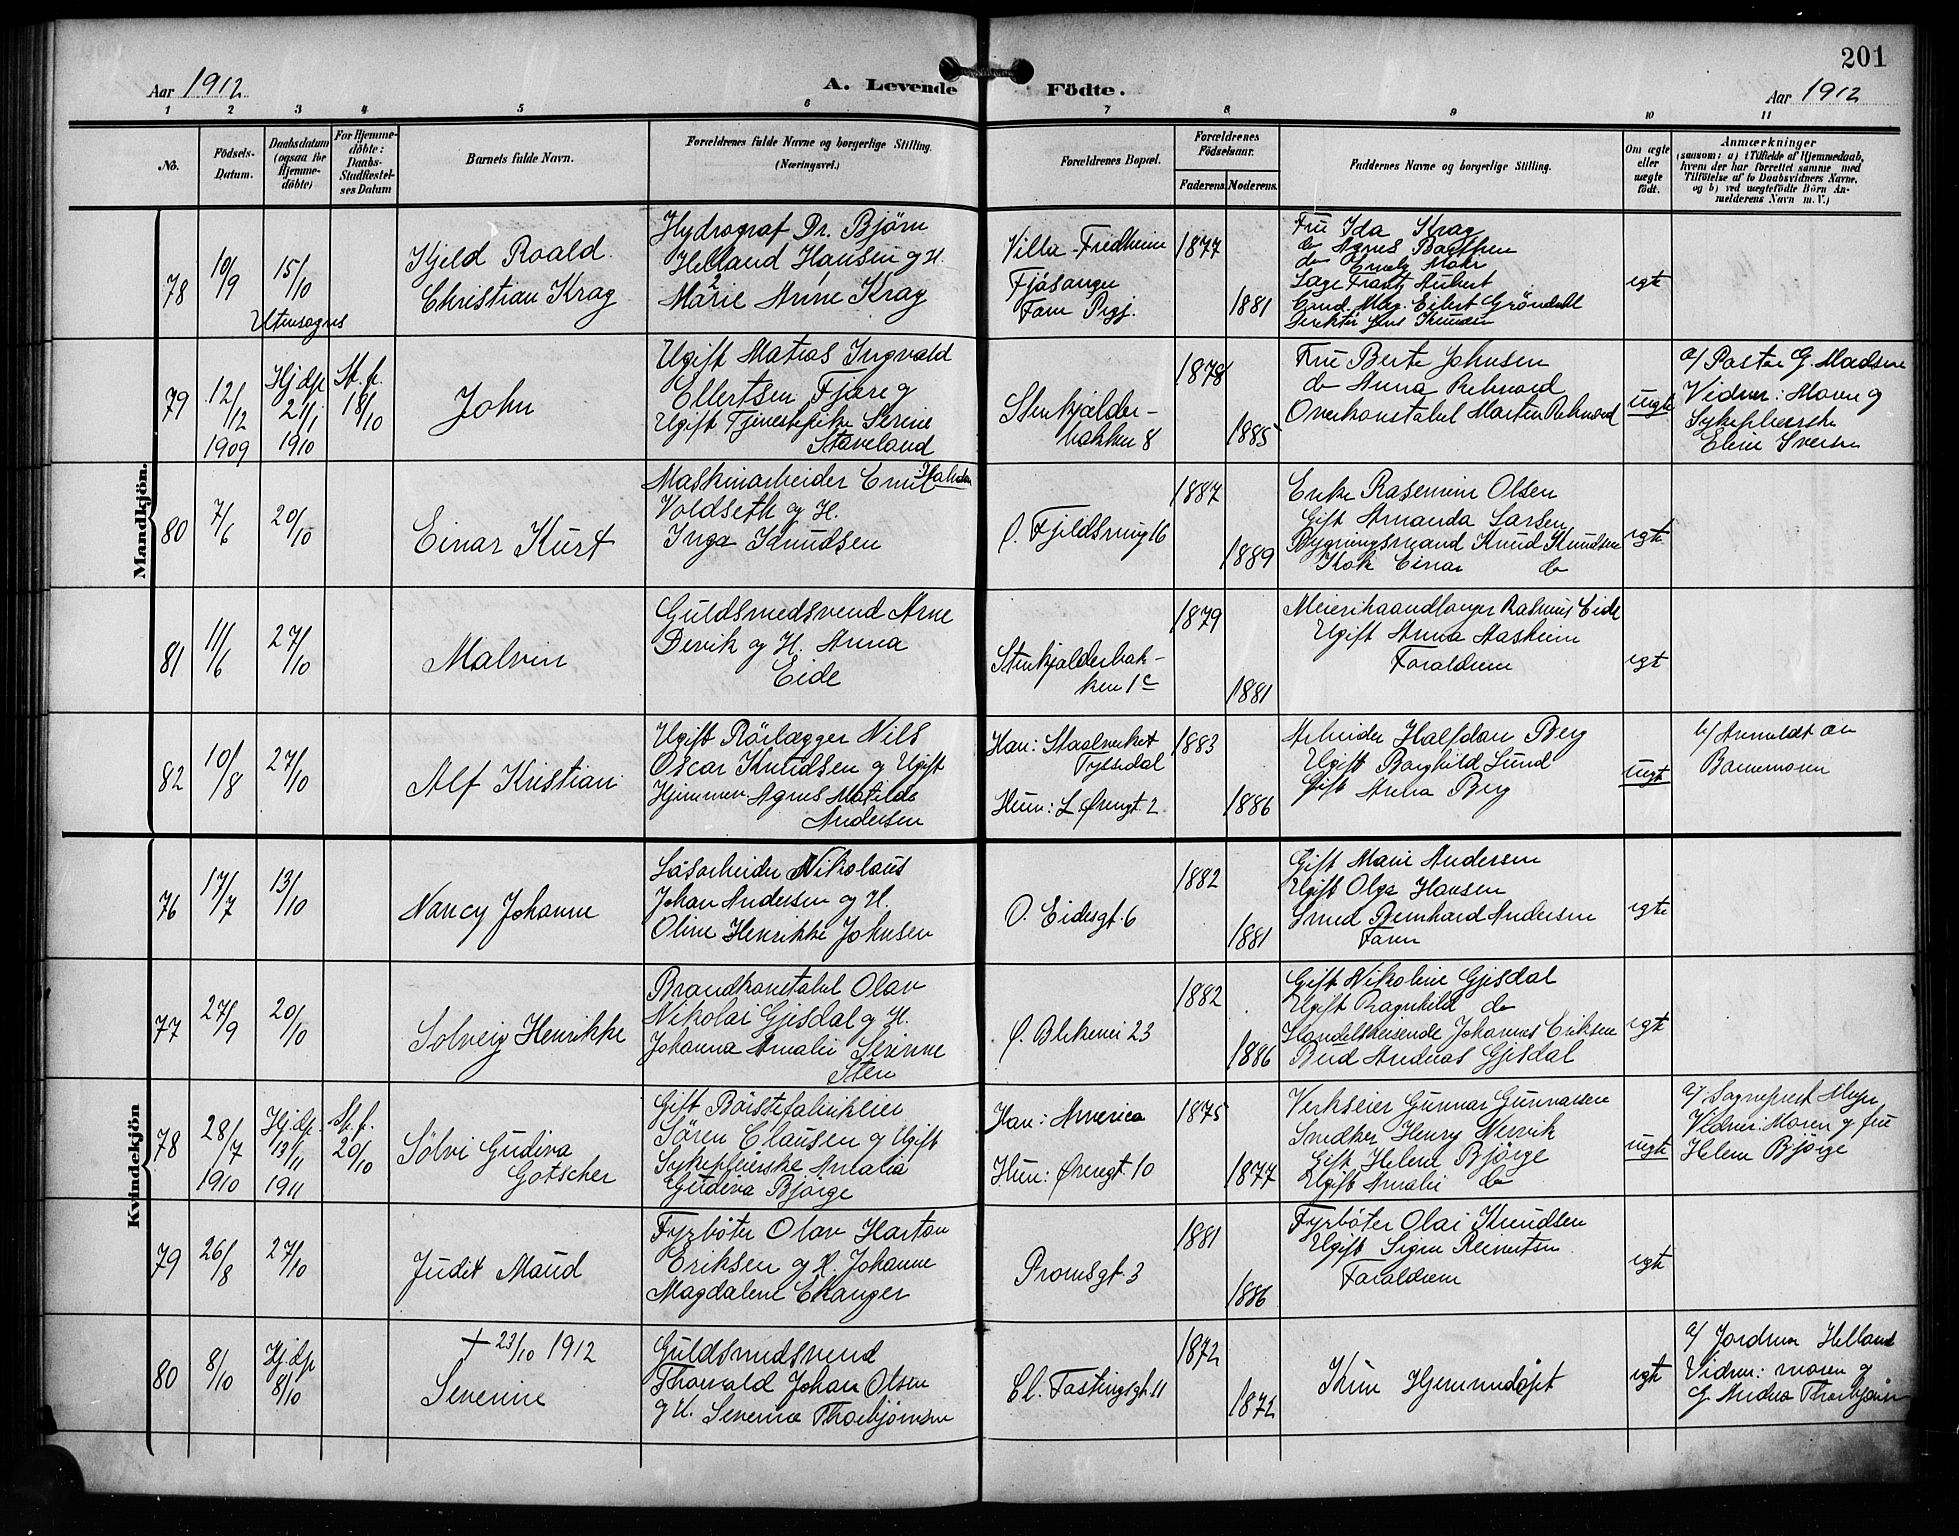 201
Aar 1912
A. Levende Födte.
Aar 1912
1 2 3 4 5 6 7 8 9 10 11
No.
Födsels-Datum.
Daabsdatum (ogsaa for Hjemme-döbte)
For Hjemme-döbte: Daabs-Stadfæstel-ses Datum
Barnets fulde Navn.
Forældrenes fulde Navne og borgerlige Stilling. (Næringsvei.)
Forældrenes Bopæl.
Forældrenes Födselsaar.
Faderens. Moderens.
Faddernes Navne og borgerlige Stilling.
Om ægte eller uægte födt.
Anmærkninger
(saasom: a) i Tilfælde af Hjemmedaab, hvem der har forrettet samme med Tilföielse af to Daabsvidners Navne, og b) ved uægtefödte Börn An-melderens Navn m. V.)
Mandkjön.
78
10/9
15/10
Utensogns
Kjeld Roald
Christian Krag
Hydrograf Dr. Bjørn
Helland Hansen og H.
Marie Anne Krag
Villa Fredheim
Fjøsanger
Fam Pigj.
1877
1881
Frue Ida Krag
do Agnes
do Emely Mohr
Frantz Aubert
Cand. Mag. Eilert Gröndahl
egte
79
12/12 1909
Hj.dp 21/1 1910
St. f. 18/10
John
Ugift Matias Ingvald
Ellertsen Fjære og
Ugift Tjenestepike Serine
Staveland
Stenkjelder-
bakken 8
1878
1885
Frue Berte Johnsen
do Anna Rebnord
Overkonstabel Martin Rebnord
uegte
a/ Pastor G. Madsen
Vidner: Moren og
Sykepleierske
Eline Iversen
80
7/6
20/10
Einar Kurt
Maskinarbeider Emil Halvdan
Voldseth og H.
Inga Knudsen
Ø. Fjeldsmug 16
1887
1889
Enke Rasmine Olsen
Gift Amanda Larsen
Bygningsmand Knud Knudsen
Kok Einar do
egte
81
11/6
27/10
Malvin
Guldsmedsvend Arne
Dervik og H. Anna
Eide
Stenkjelderbak-
ken 1c
1879
1881
Meierihaandlanger Rasmus Eide
Ugift Anna Aasheim
Forældrene
egt
82
10/8
27/10
Alf Kristian
Ugift Rörlægger Nils
Oscar Knudsen og Ugift
Hjemmev. Agnes Matilde
Andersen
Han: Staalverket
Tyssedal
Hun: L. Øregt. 2
1883
1886
Arbeider Halfdan Berg
Ugift Borghild Lund
Gift Anna Berg
uegt
b/ Anmeldt av
Barnemoren
Kvindekjön
76
17/7
13/10
Nancy Johanne
Løsarbeider Nikolaus
Johan Andersen og H.
Oline Henrikke Johnsen
O. Eidesgt. 6
1882
1881
Gift Marie Andersen
Ugift Olga Hansen
Smed Bernhard Andersen
Faren
egte
77
27/9
20/10
Solveig Henrikke
Brandkonstabel Olav
Nikolai Gjesdal og H.
Johanna Amalie Serinne
Sten
Ø. Blekevei 23
1882
1886
Gift Nikoline Gjesdal
Ugift Ragnhild do
Handelsreisende Johannes Eriksen
Bud Andreas Gjesdal
egte
78
28/7 1910
Hj.dp. 13/11 1911
St. f. 20/10
Sølvi Gudiva
Gotscher
Gift Börstefabrikeier
Sören Clausen og Ugift
Sykepleierske Amalia
Gudiva Bjørge
Han: America
Hun: Øvregt 10
1875
1877
Verkseier Gunnar Gunnarsen
Snedker Henry Nervik
Gift Helene Bjørge
Ugift Amalie do
uegte
a/ Sogneprest Meyer
Vidner: Moren og frue
Helene Bjørge
79
26/8
27/10
Judit Maud
Fyrböter Olav Harton
Eriksen og H. Johanne
Magdalene Ekanger
Promsgt. 3
1881
1886
Fyrböter Olai Knudsen
Ugift Signe Reinertsen
Forældrene
egte
80
8/10
Hj.dp 8/10
† 23/10 1912
Severine
Guldsmedsvend
Thorvald Johan Olsen
og H. Severine Thorbjørnsen
Cl. Fastingsgt. 11
1872
1872
Kun Hjemmedøpt
egte
a/ Jordmor Helland
Vidner: moren og
G. Andrea Thorbjørnsen